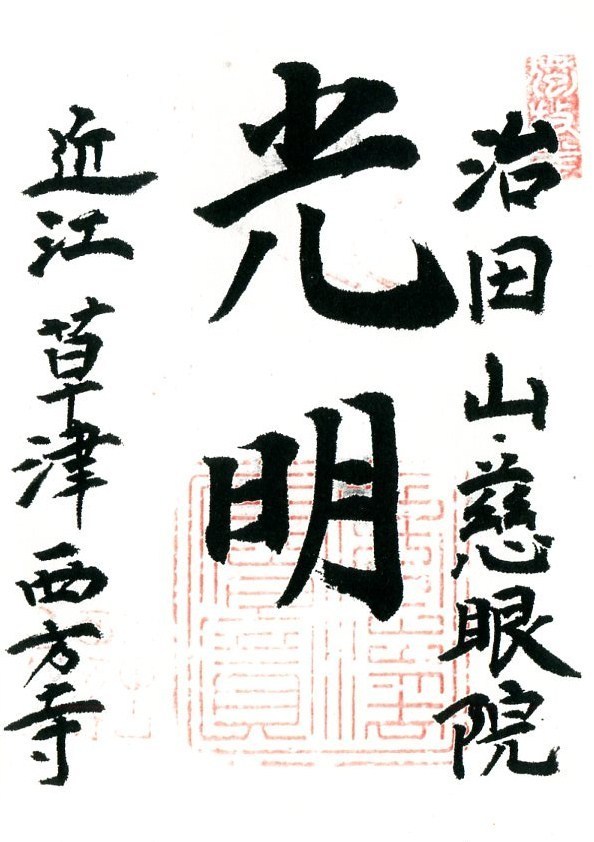 治田山・慈眼院
光明
近江 草津 西方寺